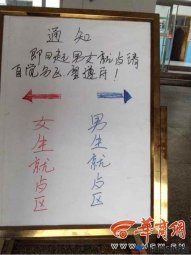 通知
即日起男女就占请
自觉分区,望遵守!
女生就占区
男生就占区
华商网
WWW.HSW.CN